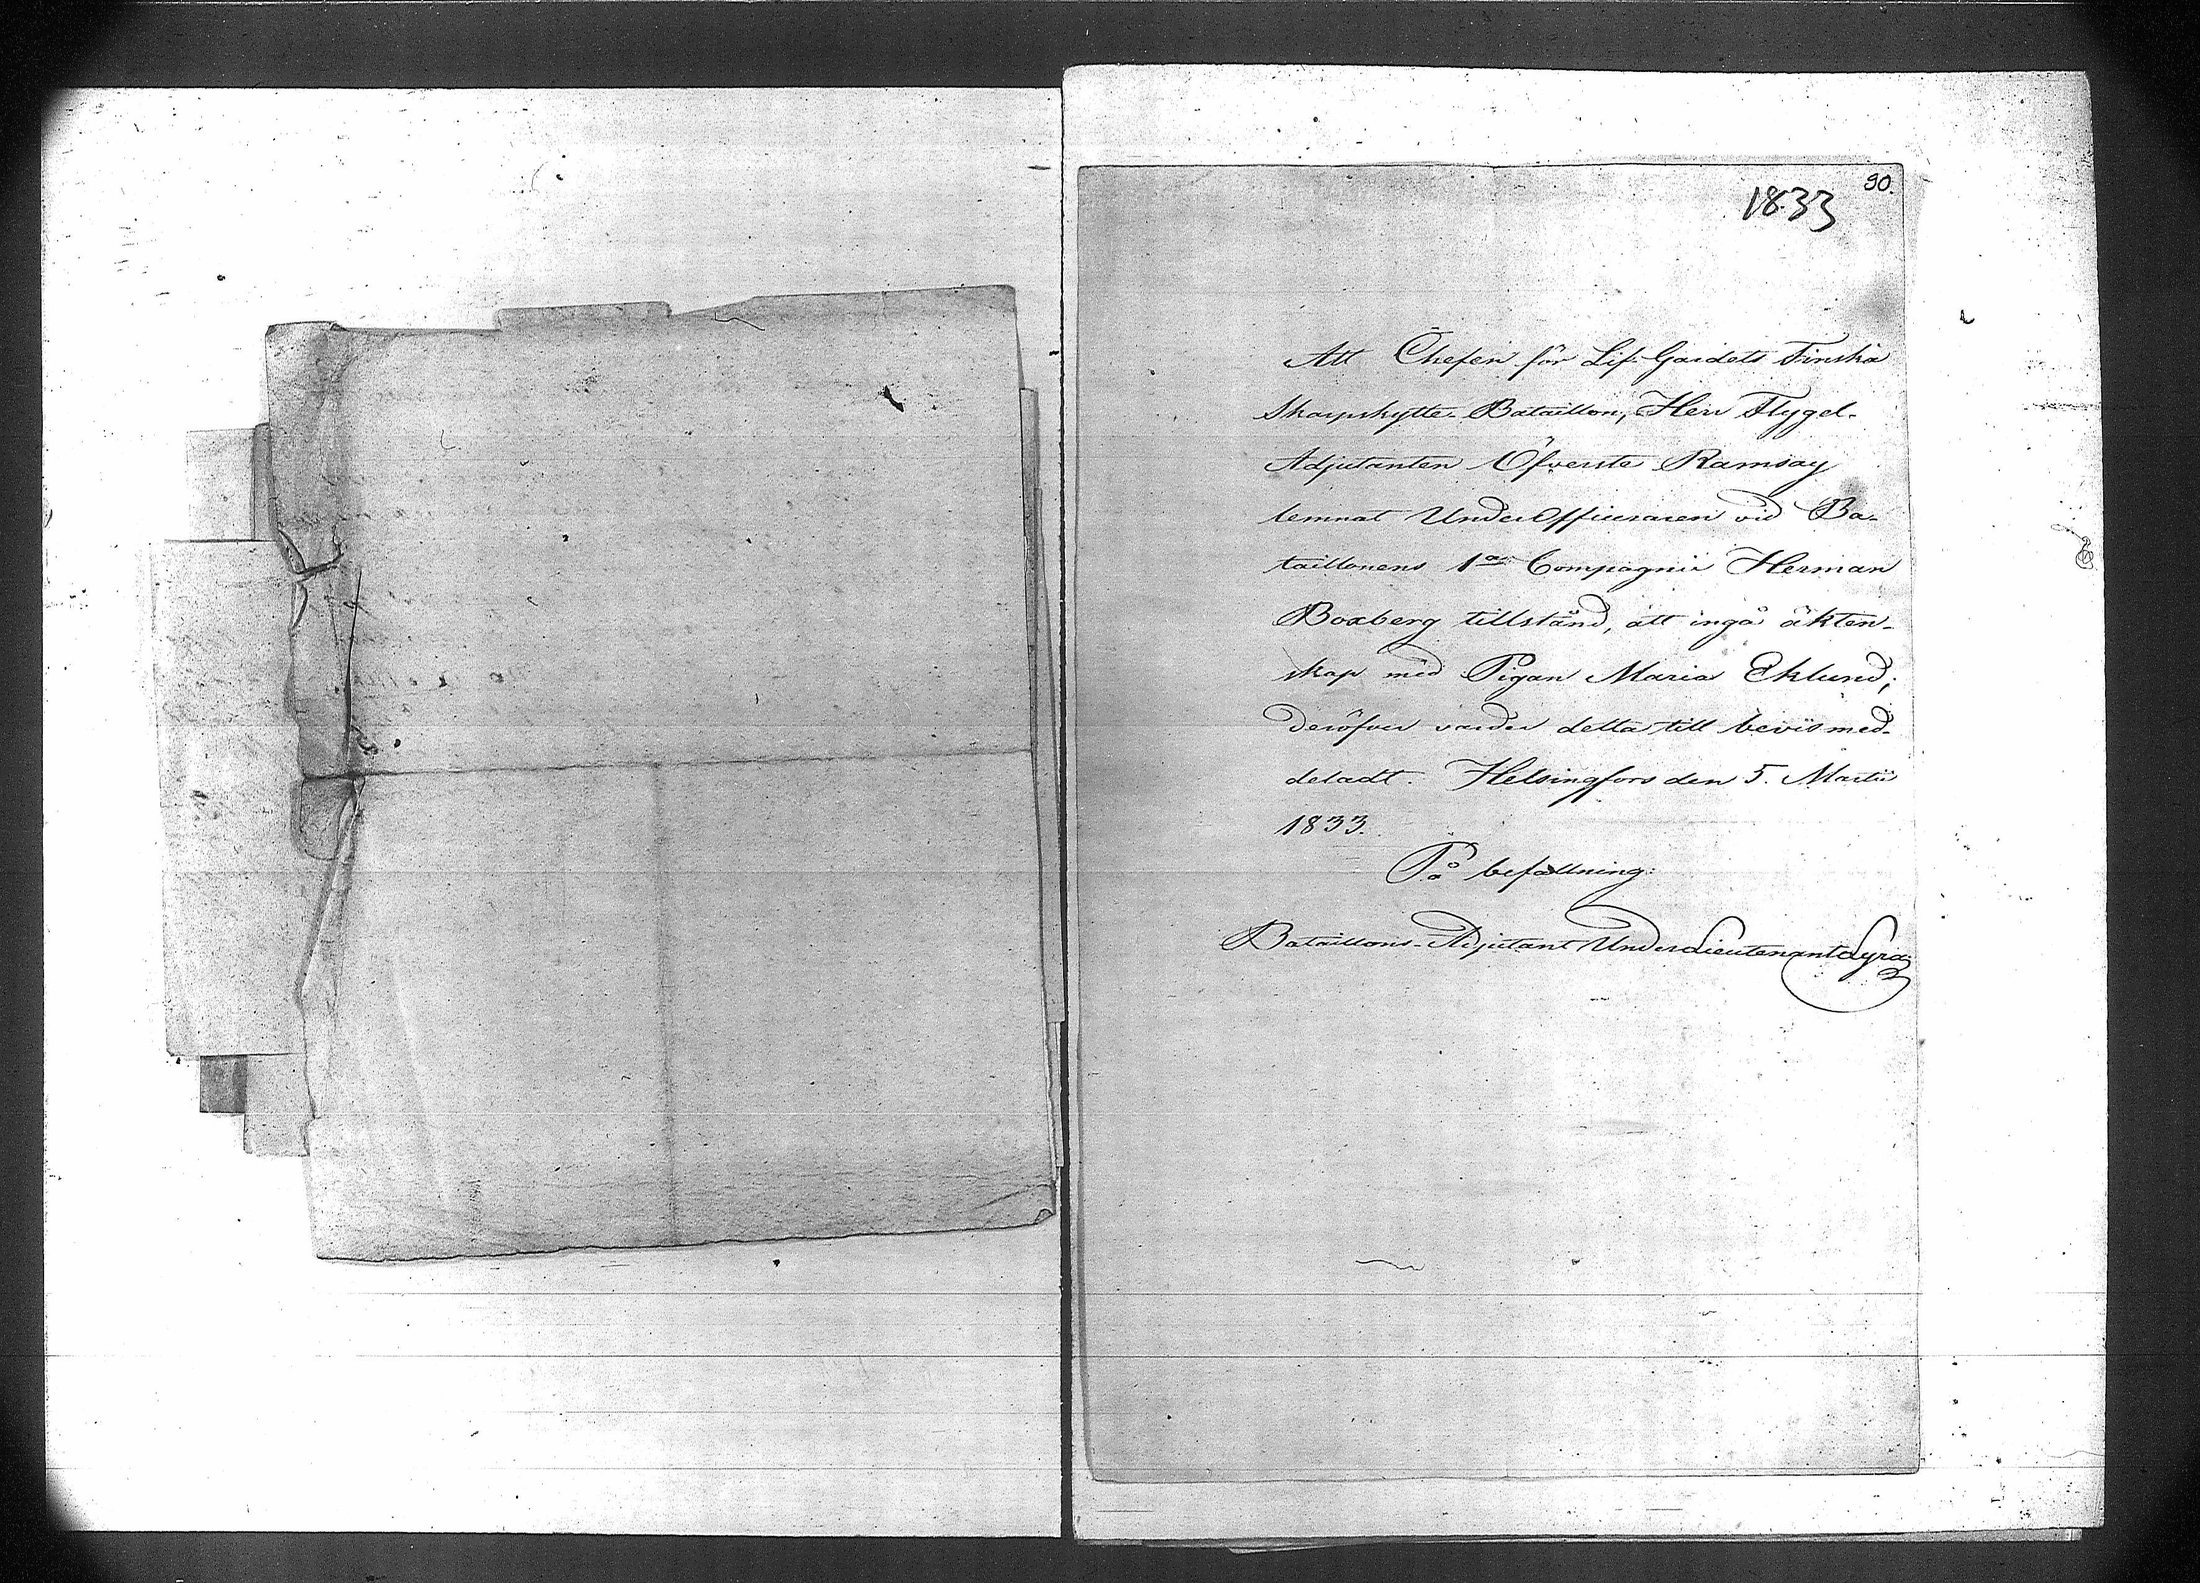 90.
1833
Att Chefen för Lif-Gardets Finska
Skarpskytte-Bataillon, Herr Flygel-
Adjutanten Öfverste Ramsay
lemnat UnderOfficeraren vid Ba-
taillonens 1a Compagnie Herman
Boxberg tillstånd, att ingå äkten-
skap med Pigan Maria Eklund;
deröfver varder detta till bevis med-
deladt. Helsingfors den 5. Martii
1833.
På befallning:
Bataillons-Adjutant Underlieutenant Lyra